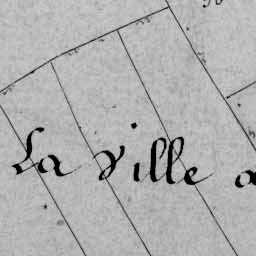 La Ville